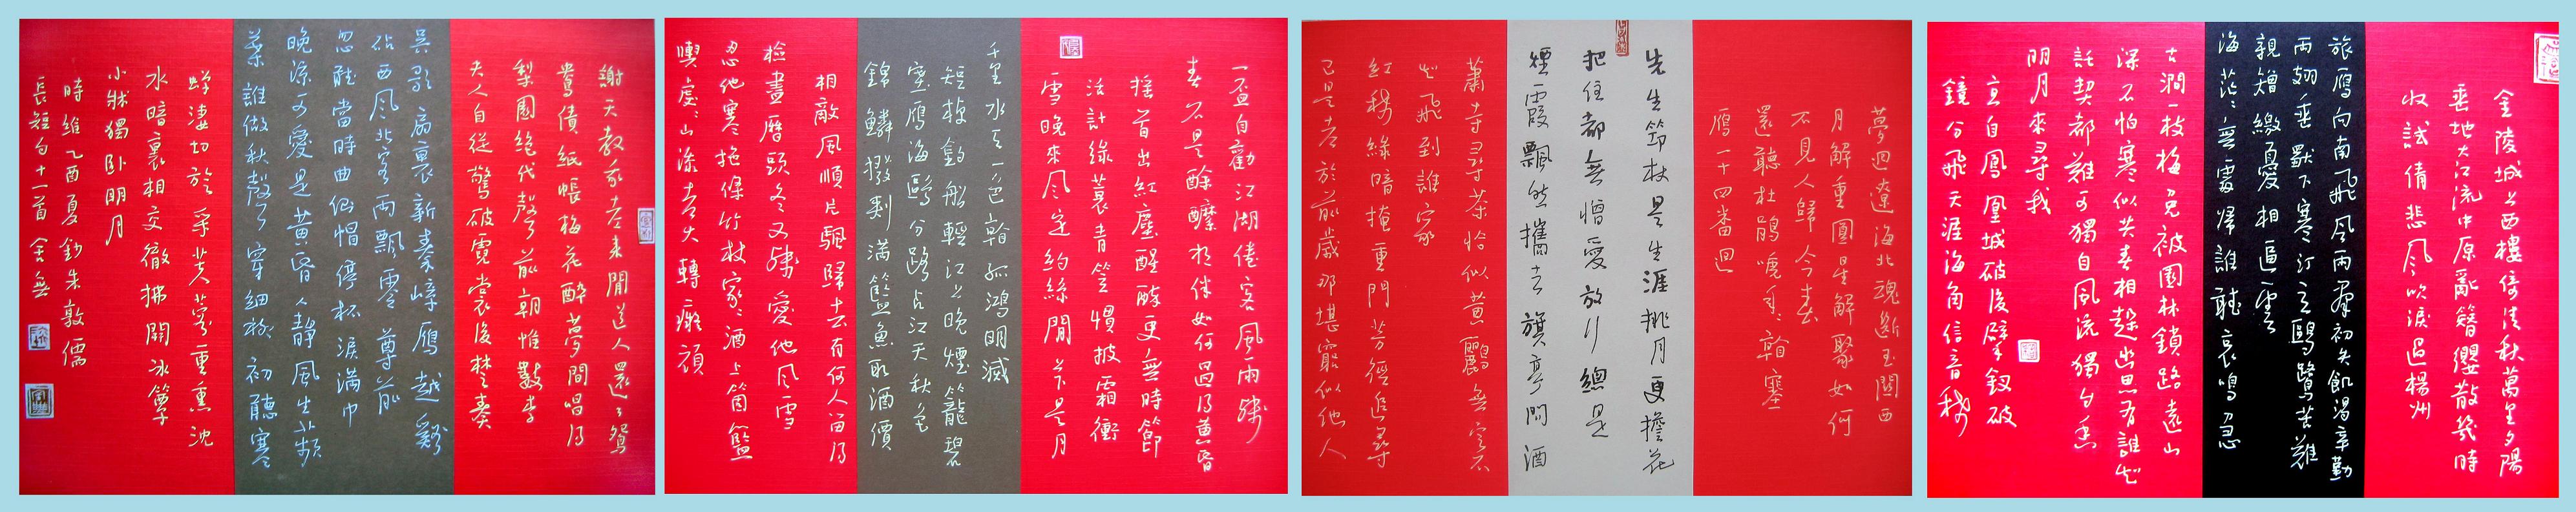 金陵城上西樓倚清秋萬里夕陽
垂地大江流中原亂簪纓散幾時
收試倩悲風吹淚過楊州
旅雁向南飛風雨羣初失飢渴辛勤
兩翅垂獸下寒汀立鷗鷺苦難
親矰繳憂相逼雲
海茫茫無處歸誰聽哀鳴急
古澗一枝梅免被園林鎖路遠山
深不怕寒似共春相趓幽思有誰知
託契都難可獨自風流獨自香
明月來尋我
直自鳳凰城破後擘釵破
鏡分飛天涯海角信音稀
夢迴遼海北魂斷玉關西
月解重圓星解聚如何
不見人歸今春
還聽杜鵑啼年年看塞
雁一十四番迴
先生筇杖是生涯挑月更擔花
把住都無憎愛放行總是
煙霞飄然攜去旗亭問酒
蕭寺尋茶恰似黃鸝無定不
知飛到誰家
紅稀綠暗掩重門芳徑追尋
已是老於前歲那堪窮似他人
一盃自勸江湖倦客風雨殘
春不是酴醾相伴如何過得黃昏
搖首出紅塵醒醉更無時節
活計綠蓑青笠慣披霜衝
雪晚來風定釣絲閒上下是月
千里水天一色看孤鴻明滅
短棹釣船輕江上晚煙籠碧
塞雁海鷗分路占江天秋色
錦鱗撥剌滿籃魚取酒價
相敵風順片颿歸去有何人留得
檢盡曆頭冬又殘愛他風雪
忍他寒拖條竹杖家家酒上箇籃
輿處處山添老大轉癡頑
謝天教我老來閒道人還了鴛
鴦債紙帳梅花醉夢間唱得
梨園絕代聲前朝惟數李
夫人自從驚破霓裳後楚奏
吳歌扇裏新秦嶂雁越谿
砧西風北客兩飄零尊前
忽聽當時曲側帽停杯淚滿巾
晚涼可愛是黃昏人靜風生蘋
葉誰做秋聲穿細柳初聽寒
蟬淒切旋采芙蓉重熏沈
水暗裏相交徹拂開冰簟
小牀獨臥明月
時維乙酉夏鈔朱敦儒
長短句十一首舍無